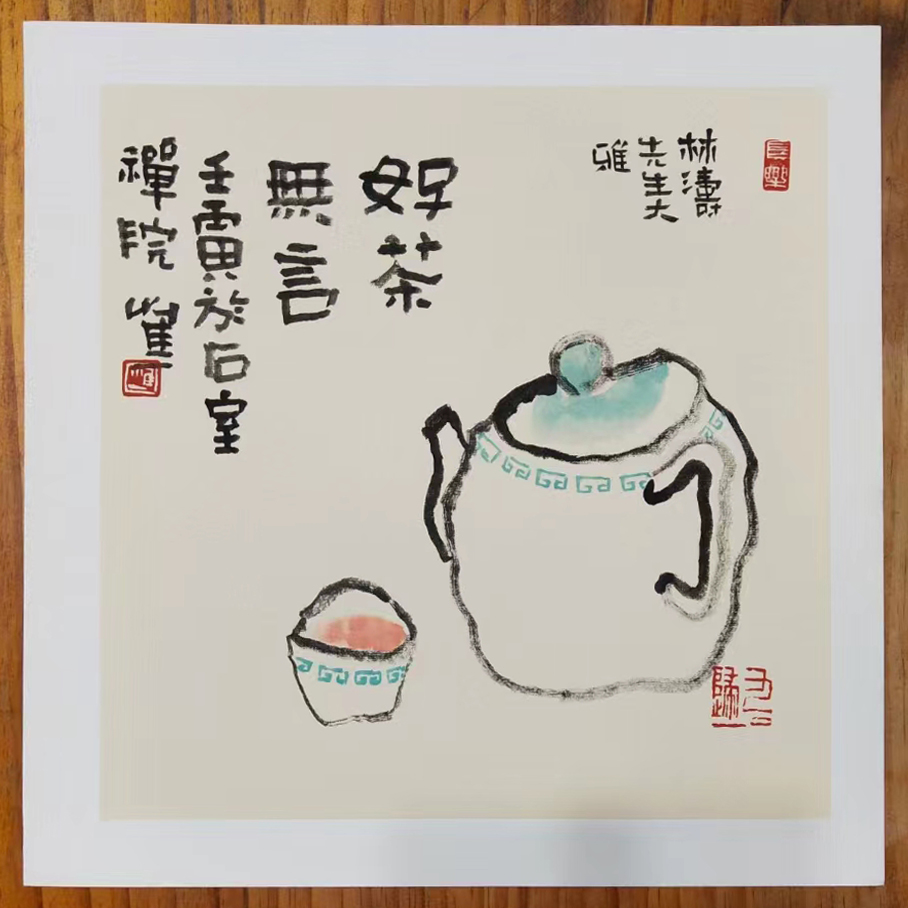 長樂
林濤
先生大
雅
好茶
無言
壬寅於石室
禪院 崔